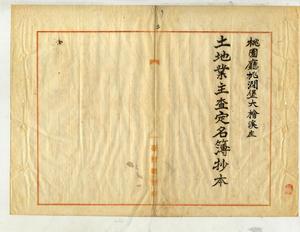 桃園廳桃澗堡大檜溪庄
土地業主査定名簿抄本